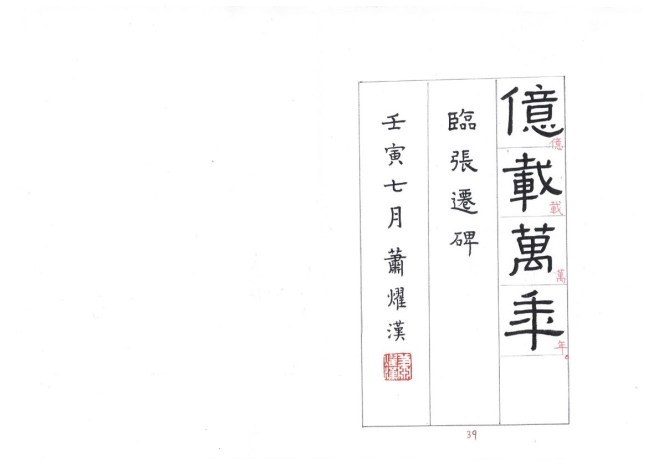 億載萬年
億載萬年。
臨張遷碑
壬寅七月 蕭燿漢
39